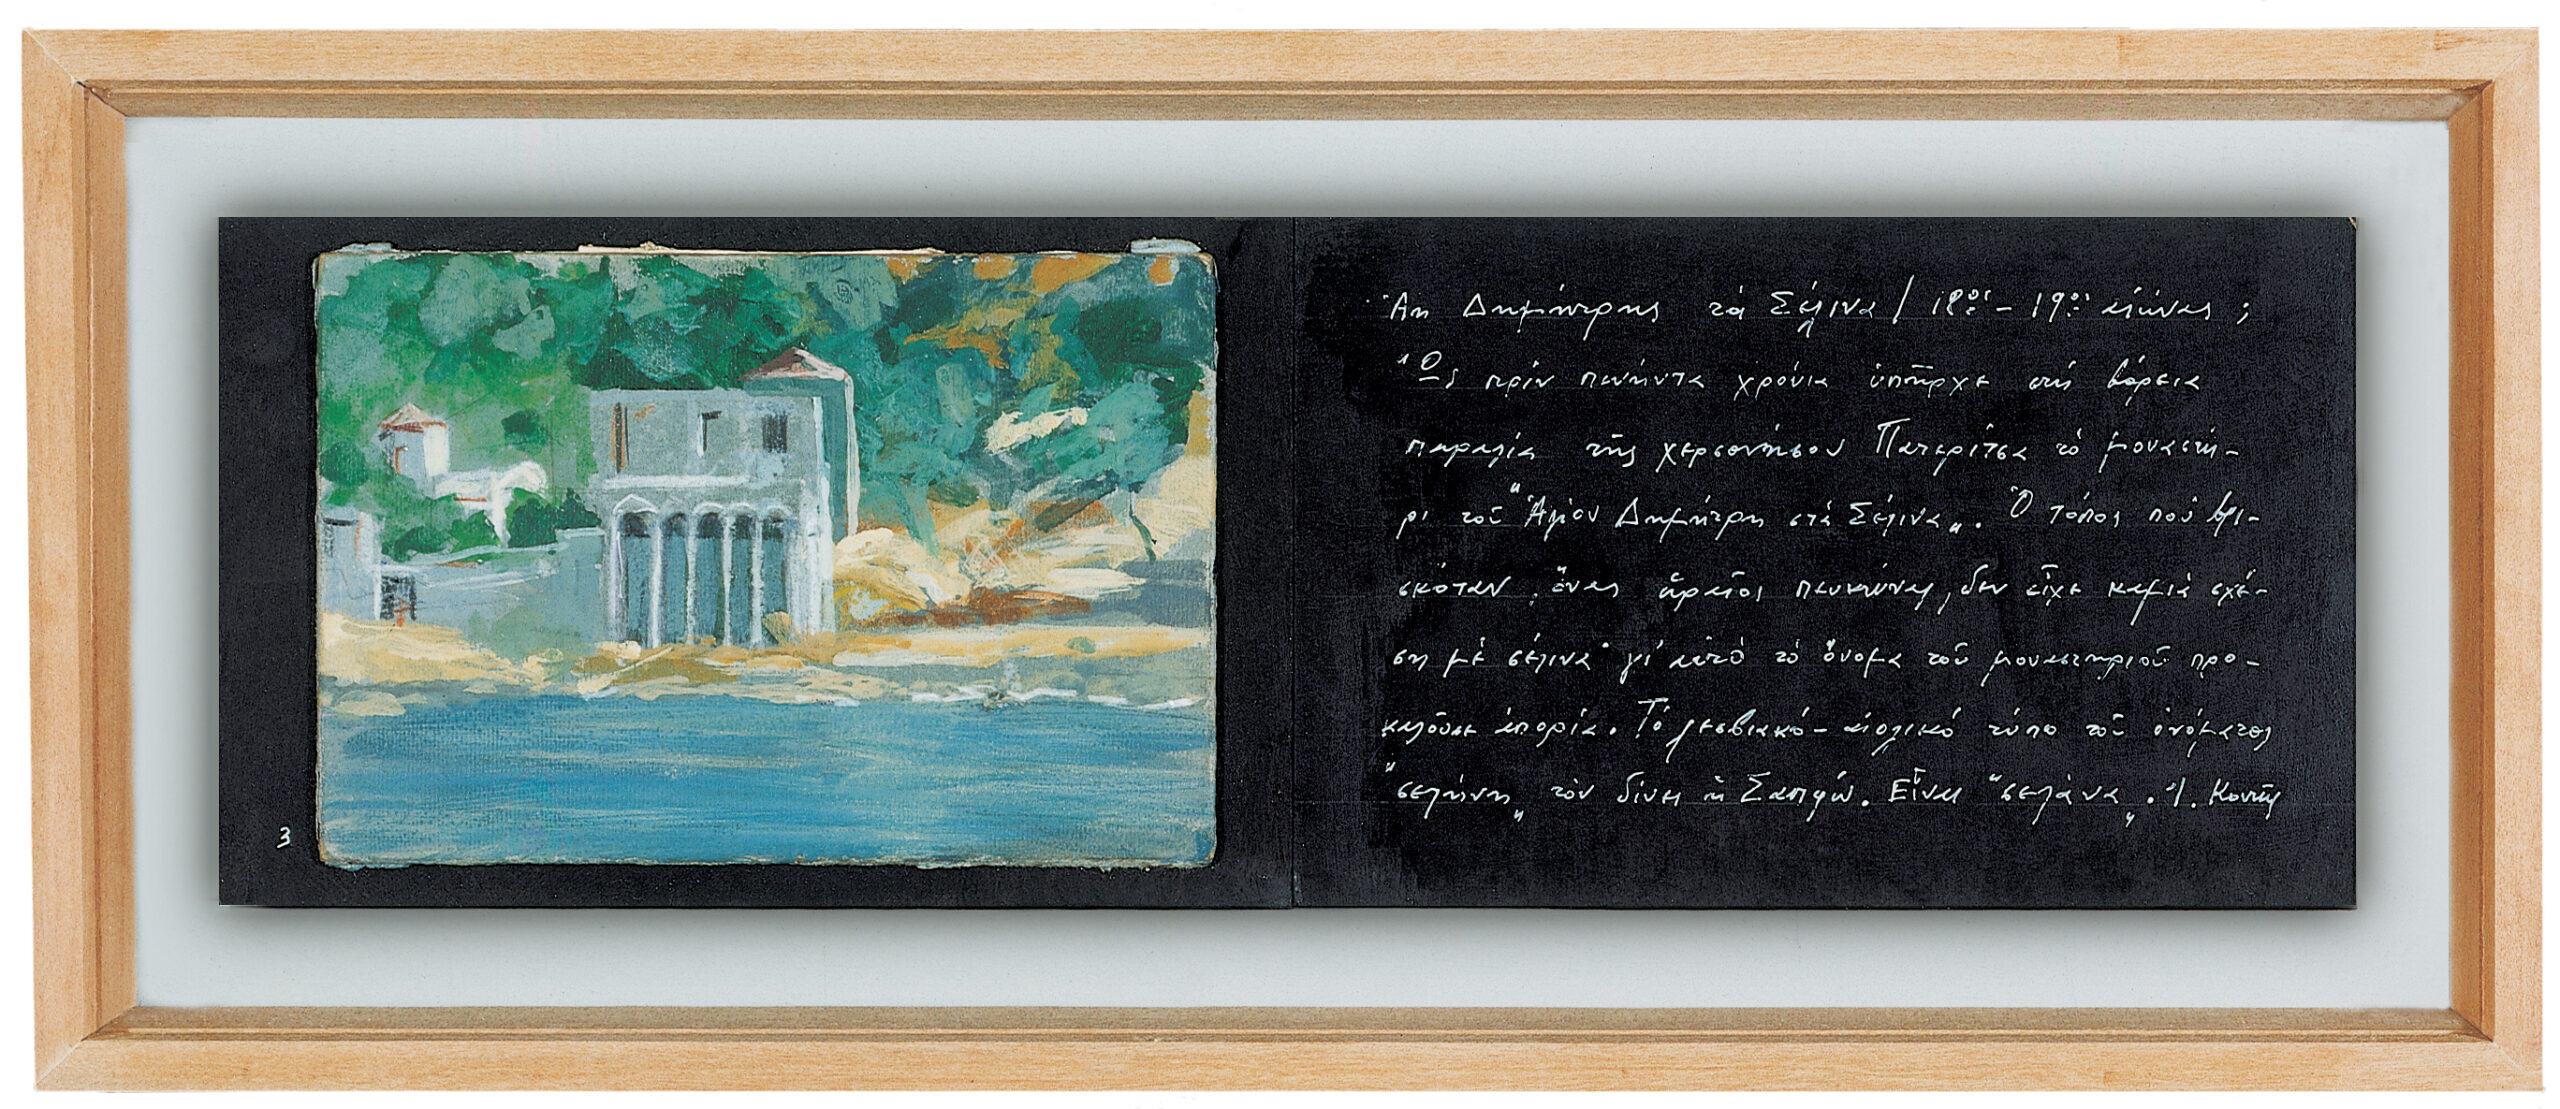 Ἁη Δημήτρης τά Σέλινα / 18ος – 19ος αἰώνας ;
Ὡς πρίν πενήντα χρόνια ὑπῆρχε στή βόρεια
παραλία τῆς χερσονήσου Πατερίτσα τό μοναστή-
ρι τοῦ "Ἁγίου Δημήτρη στά Σέλινα". Ὁ τόπος πού βρι-
σκόταν, ἕνας ὡραῖος πευκώνας, δεν εἶχε καμιά σχέ-
ση μέ σέλινα· γι' αὐτό τό ὄνομα τοῦ μοναστηριοῦ προ-
καλοῦσε ἀπορία. Τό λεσβιακό-αἰολικό τύπο τοῦ ὀνόματος
"σελήνη" τόν δίνει ἡ Σαπφώ. Εἶναι "σελάνα". Ι. Κοντῆς
3